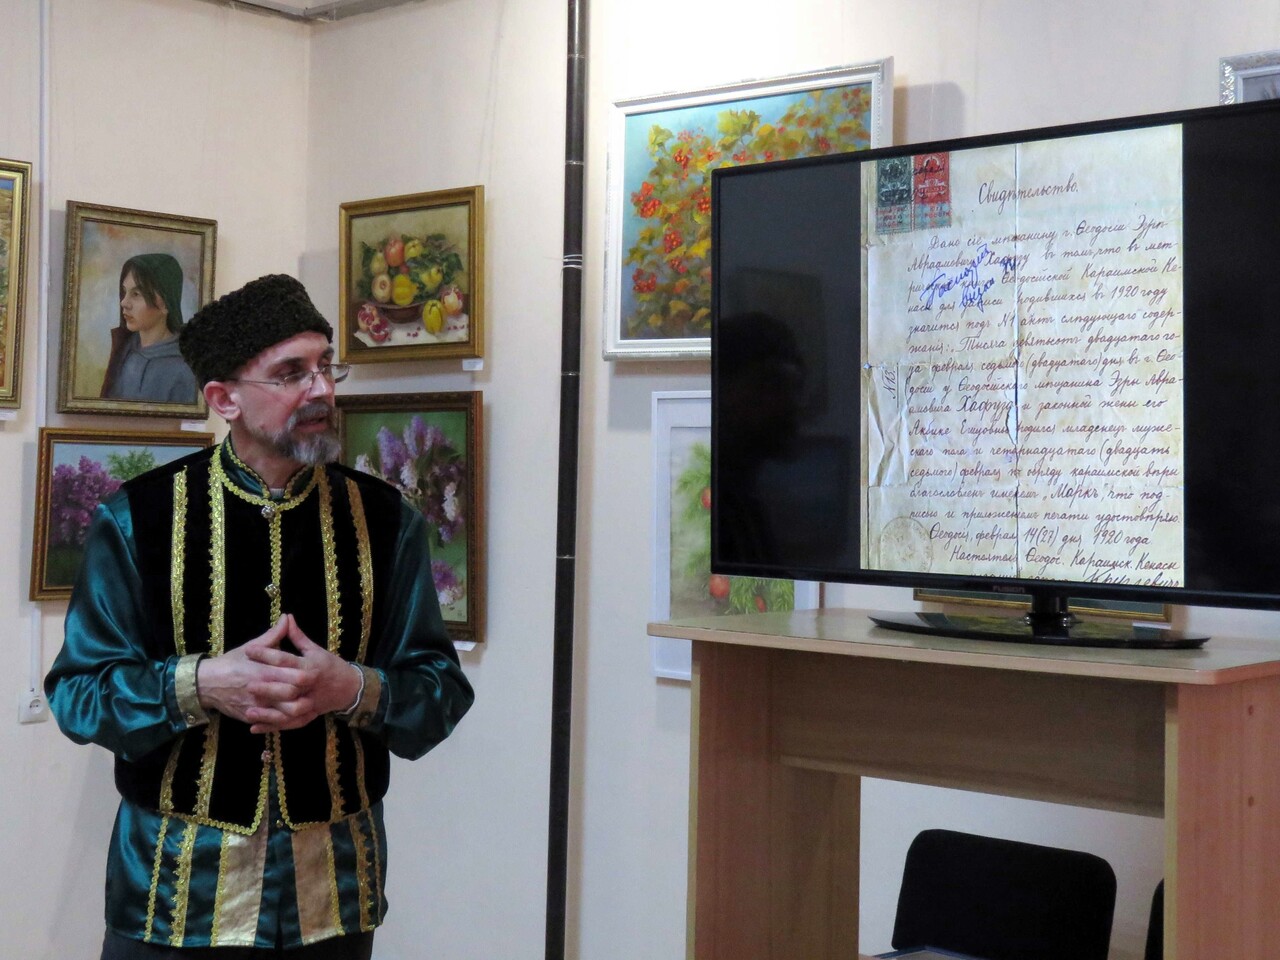 Свидѣтельство.
Дано сіе мѣщанину г. Ѳеодосіи Эзрѣ
Авраамовичу Хафузу въ томъ, что въ мет-
Ѳеодосійской Караимской Ке-
насы для записи родившихся въ 1920 году
значится подъ №1 актъ слѣдующаго содер-
жанія: „Тысяча девятьсотъ двадцатаго го-
да февраля седьмого (двадцатаго) дня въ г. Ѳео-
досіи у Ѳеодосійскаго мѣщанина Эзры Авра-
амовича Хафузъ и законной жены его
Акбике Ешуовны родился младенецъ муже-
ского пола и четырнадцатаго (двадцать
седьмого) февраля по обряду караимской вѣры
благословленъ именемъ „Маркъ", что под-
писью и приложеніемъ печати удостовѣряю.
Ѳеодосія, февраля 14 (27) дня 1920 года
Настоятель Ѳеодос. Караимск. Кенасы
FUSION